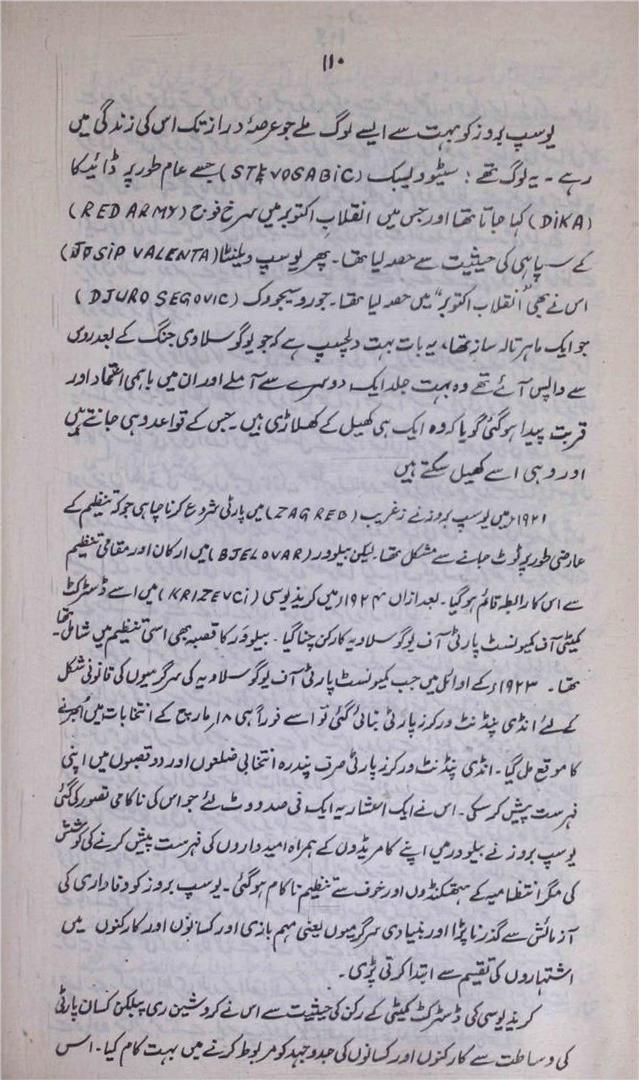 ۱۱۰
یوسپ بروز کو بہت سے ایسے لوگ ملے جو عرصۂ دراز تک اس کی زندگی میں
رہے ۔ یہ لوگ تھے : سٹیوولیبک (STEVOSABIC) جسے عام طور پر ڈائیکا
(DIKA) کہا جاتا تھا اور جس میں انقلاب اکتوبر میں سرخ فوج (RED ARMY)
کے سپاہی کی حیثیت سے حصہ لیا تھا ۔ پھر یوسپ ویلنٹا (JOSIP VALENTA)
اس نے بھی "انقلاب اکتوبر" میں حصہ لیا تھا ۔ جورو سیجووک (DJURO SEGOVIC)
جو ایک ماہر تالہ ساز تھا ، یہ بات بہت دلچسپ ہے کہ جو یوگوسلاوی جنگ کے بعد روس
سے واپس آئے تھے وہ بہت جلد ایک دوسرے سے آ ملے اور ان میں باہمی اعتماد اور
قربت پیدا ہو گئی گویا کہ وہ ایک ہی کھیل کے کھلاڑی ہیں ۔ جس کے قواعد وہی جانتے ہیں
اور وہی اسے کھیل سکتے ہیں
۱۹۲۱ء میں یوسپ بروز نے زغریب (ZAGRED) میں پارٹی شروع کرنا چاہی جو کہ تنظیم کے
عارضی طور پر ٹوٹ جانے سے مشکل تھا ۔ لیکن بیلوور (BJELOVAR) میں ارکان اور مقامی تنظیم
سے اس کا رابطہ قائم ہو گیا ۔ بعد ازاں ۱۹۲۴ء میں کریزیوسی (KRIZEVCI) میں اسے ڈسٹرکٹ
کمیٹی آف کمیونسٹ پارٹی آف یوگوسلاویہ کا رکن چنا گیا ۔ بیلوور کا قصبہ بھی اسی تنظیم میں شامل تھا
تھا ۔ ۱۹۲۳ء کے اوائل میں جب کمیونسٹ پارٹی آف یوگوسلاویہ کی سرگرمیوں کی قانونی شکل
کے لئے انڈی پنڈنٹ ورکرز پارٹی بنائی گئی تو اسے فوراً ہی ۱۸ مارچ کے انتخابات میں اُبھرنے
کا موقع مل گیا ۔ انڈی پنڈنٹ ورکرز پارٹی صرف پندرہ انتخابی ضلعوں اور دو قصبوں میں اپنی
فہرست پیش کر سکی ۔ اس نے ایک اعشاریہ ایک فی صد ووٹ لئے جو اس کی ناکامی تصور کی گئی
یوسپ بروز نے بیلوور میں اپنے کامریڈوں کے ہمراہ امیدواروں کی فہرست پیش کرنے کی کوشش
کی مگر انتظامیہ کے ہتھکنڈوں اور خوف سے تنظیم ناکام ہو گئی ۔ یوسپ بروز کو وفاداری کی
آزمائش سے گذرنا پڑا اور بنیادی سرگرمیوں یعنی مہم بازی اور کسانوں اور کارکنوں میں
اشتہاروں کی تقسیم سے ابتدا کرنی پڑی ۔
کریزیوسی کی ڈسٹرکٹ کمیٹی کے رکن کی حیثیت سے اس نے کروشین ری پبلکن کسان پارٹی
کی وساطت سے کارکنوں اور کسانوں کی جدوجہد کو مربوط کرنے میں بہت کام کیا ۔ اس